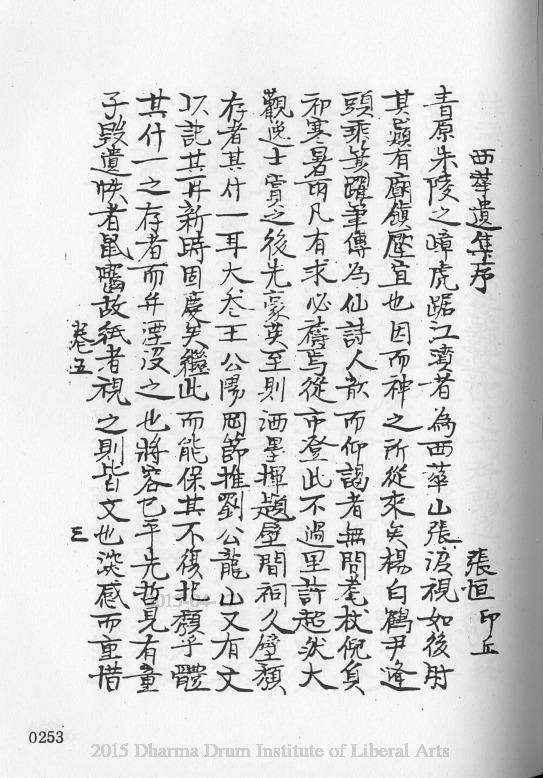 西華遺集序
張恒 印丘
青原朱陵之嶂虎踞江濆者為西華山張視如後肘
其巔有廟鎮壓宜也因而神之所從來矣楊白鶴尹逢
頭乘箕躡筆傳為仙詩人歆而仰謁者無間耄杖倪負
祁寒暑雨凡有求必禱焉從市登此不過里許超然大
觀逸士賞之後先豪英至則洒墨揮題壁間祠久壁頹
存者其什一耳大參王公陽岡節推劉公龍山又有文
以記其再新時固慶矣繼此而能保其不復圮頹乎體
其什一之存者而弁湮沒之也將容已乎先哲見有童
子毀遺帙者鼠囓故紙者視之則皆文也深感而重惜
卷五 三
0253
2015 Dharma Drum Institute of Liberal Arts